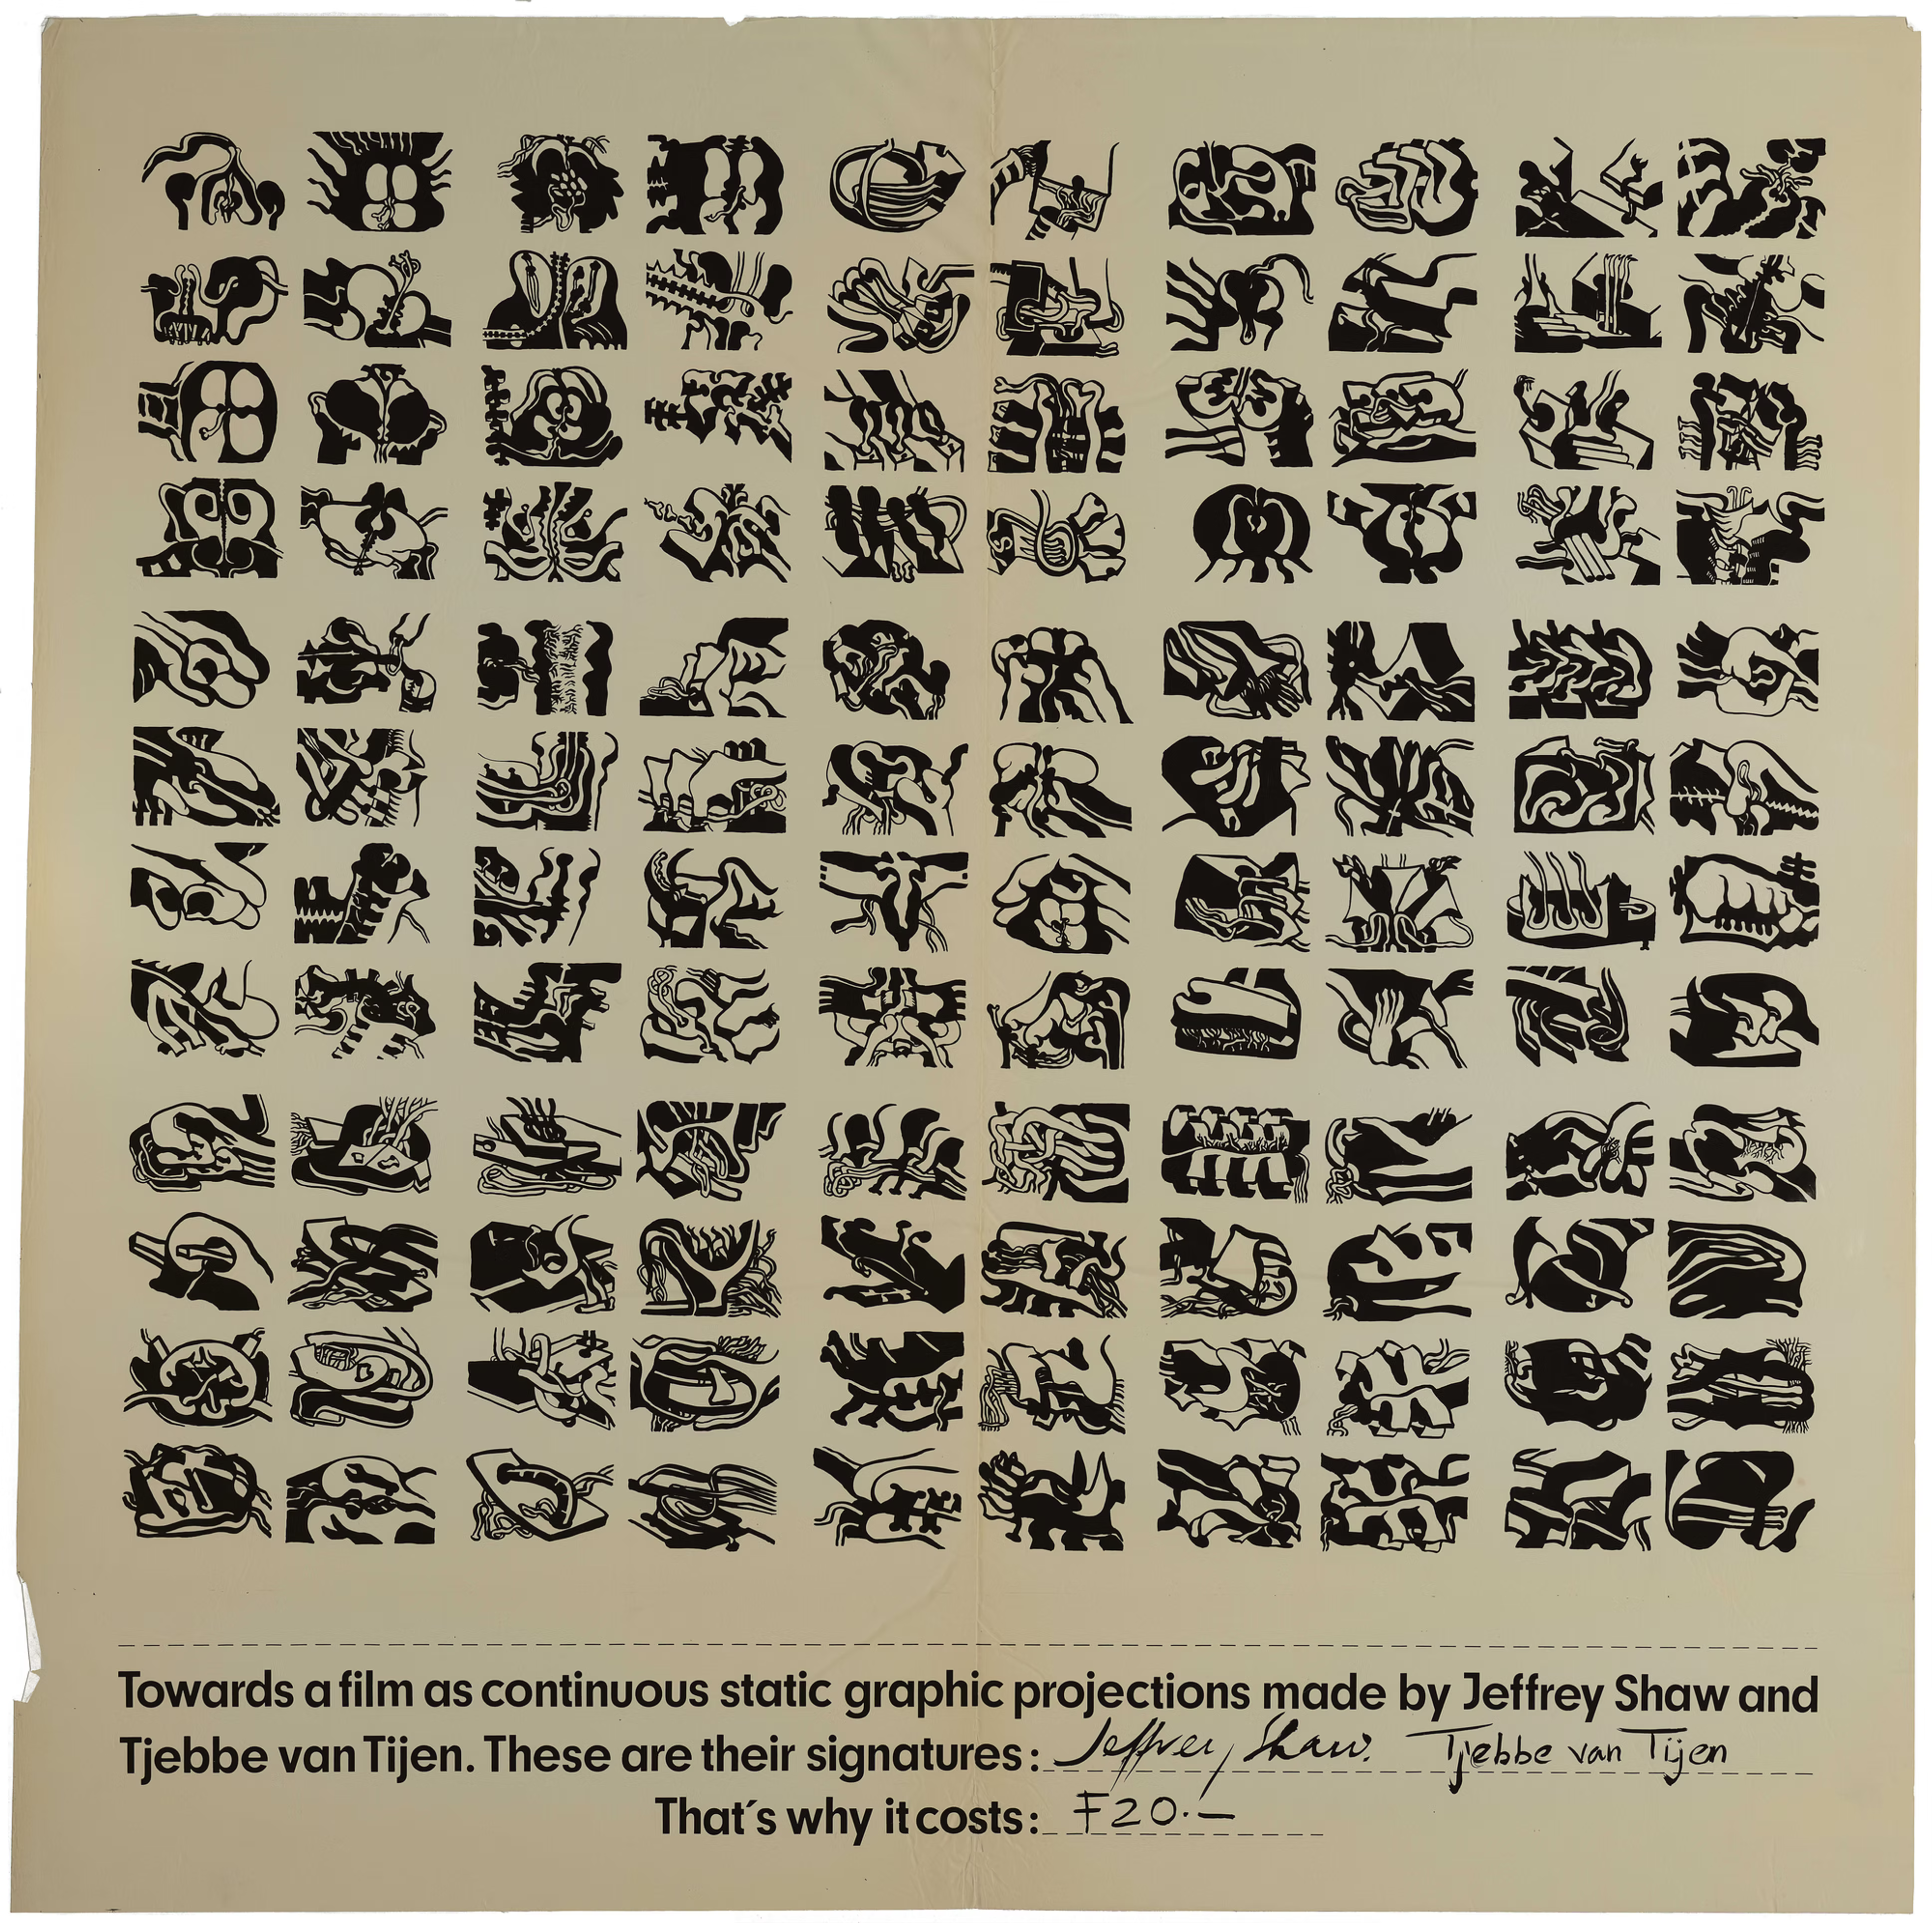 Towards a film as continuous static graphic projections made by Jeffrey Shaw and
Tjebbe van Tijen. These are their signatures: Jeffrey Shaw. Tjebbe van Tijen
That´s why it costs: F20.—